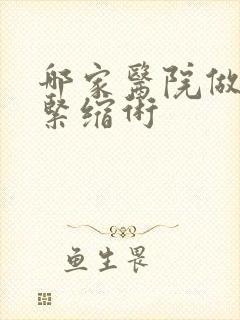 那家醫院做
緊缩術
鱼生畏